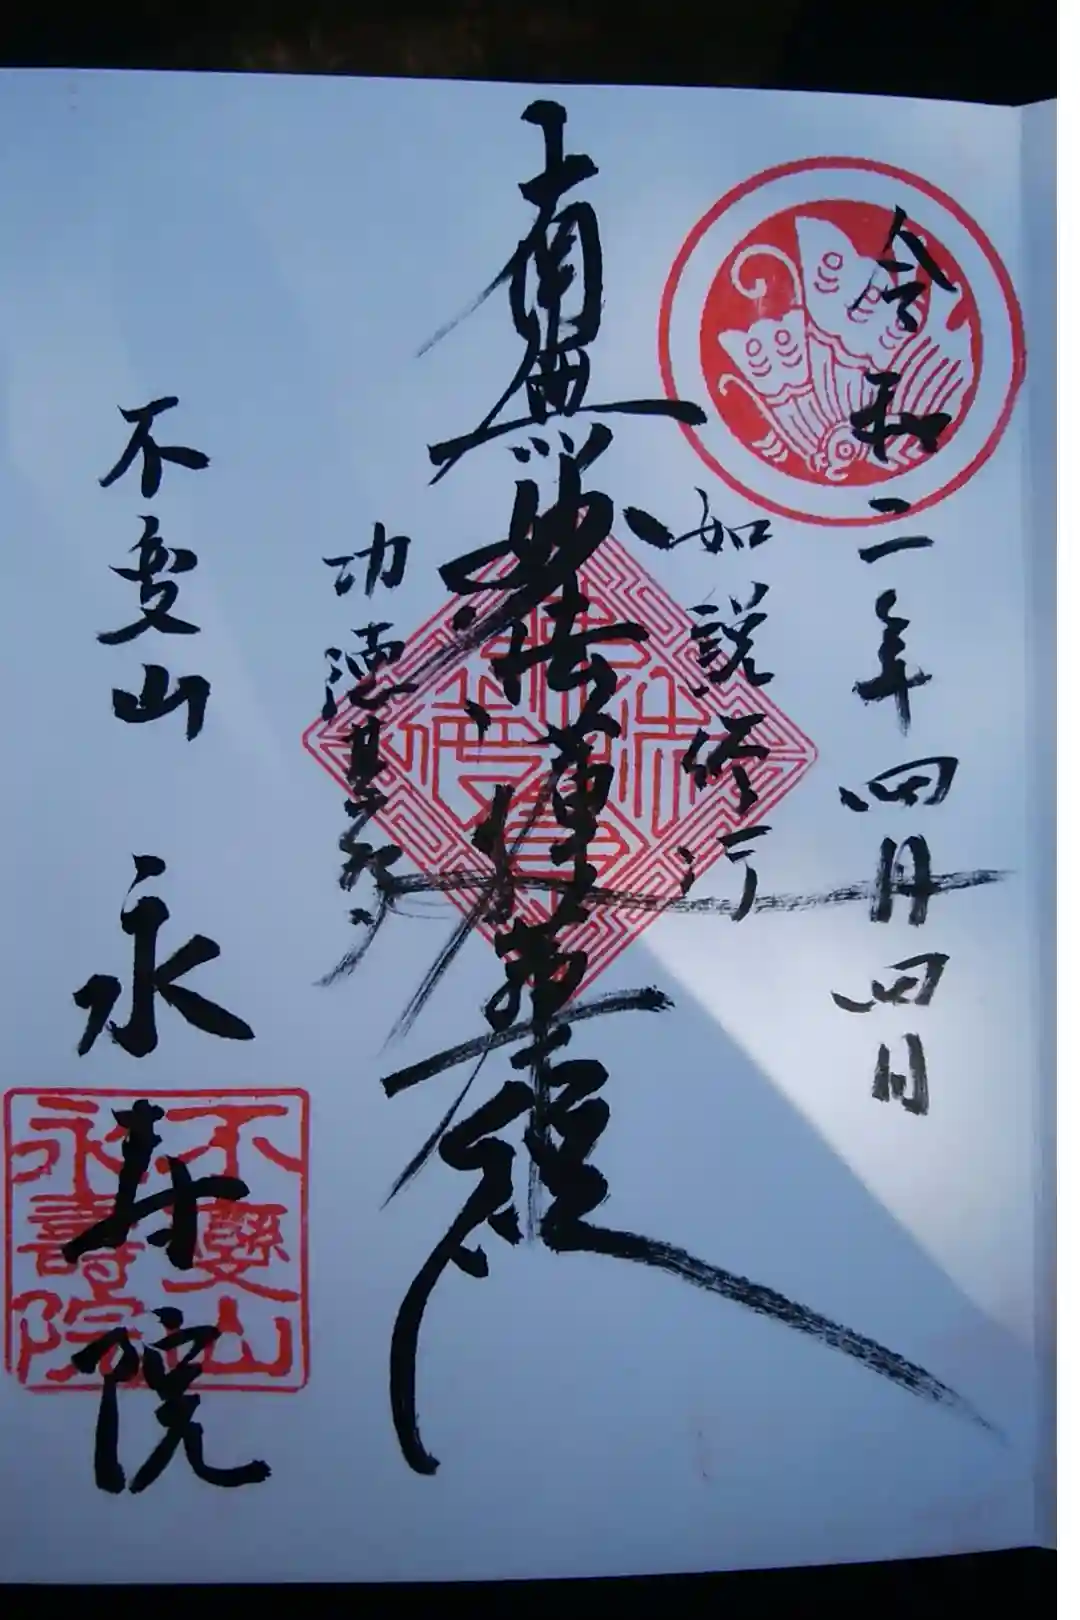 令和二年四月四日
如説修行
南無妙法蓮華経
功徳甚多
不変山 永寿院
不變山
永壽院